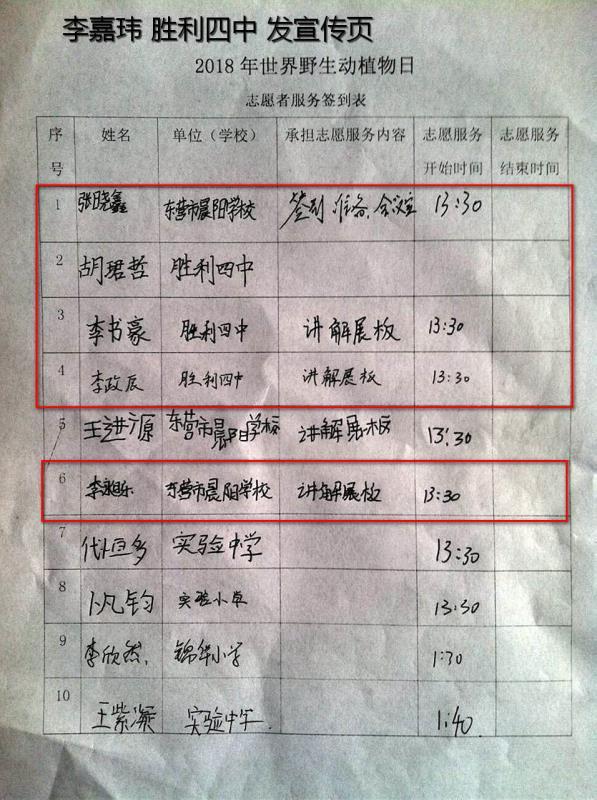 李嘉玮 胜利四中 发宣传页
2018 年世界野生动植物日
志愿者服务签到表
序号 姓名 单位（学校） 承担志愿服务内容 志愿服务开始时间 志愿服务结束时间
1 张晓鑫 东营市晨阳学校 签到 准备 会议室 13:30
2 胡珺哲 胜利四中
3 李书豪 胜利四中 讲解展板 13:30
4 李政辰 胜利四中 讲解展板 13:30
5 王进源 东营市晨阳学校 讲解展板 13:30
6 东营市晨阳学校 讲解展板 13:30
7 代恒多 实验中学 13:30
8 卜凡钧 实验小学 13:30
9 李欣然. 锦华小学 1:30
10 王紫凝 实验中学. 1:40.